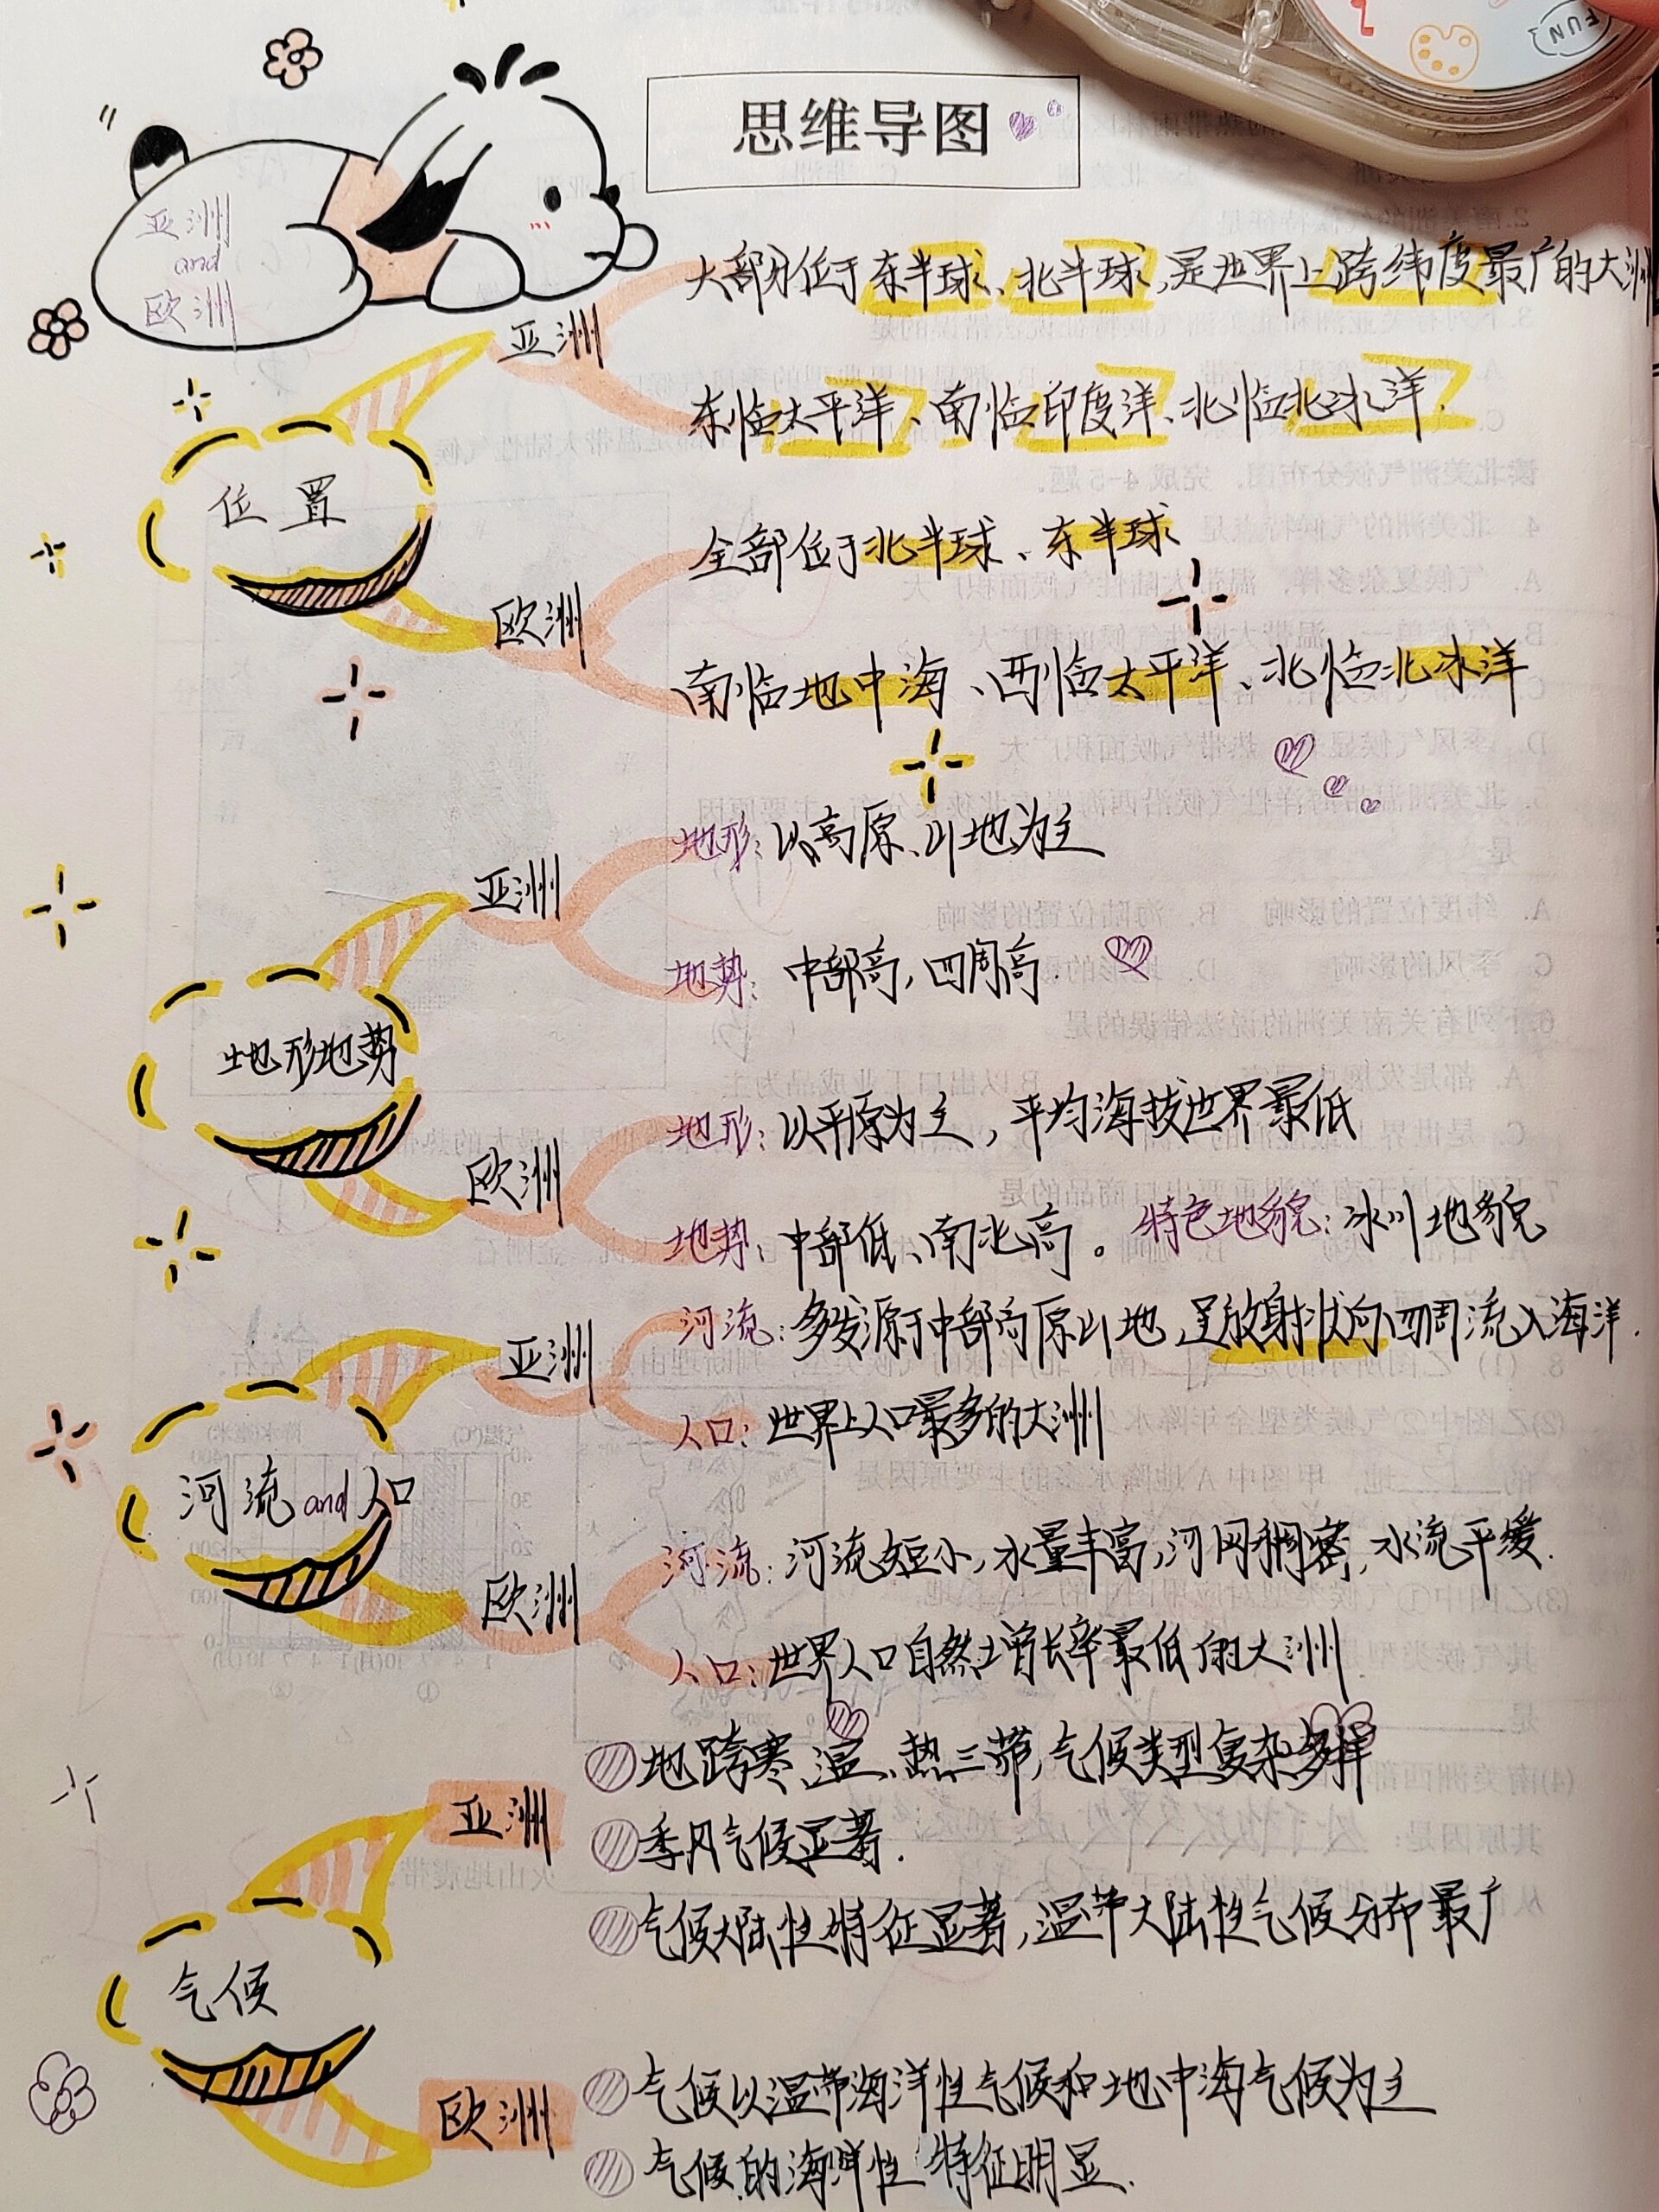 FUN
思维导图
亚洲
and
欧洲
大部分位于东半球、北半球,是世界上跨纬度最广的大洲
亚洲
东临太平洋、南临印度洋、北临北冰洋.
位置
全部位于北半球、东半球
欧洲
南临地中海、西临太平洋、北临北冰洋
地形:以高原、山地为主
亚洲
地势:中部高,四周高.
地形地势
地形:以平原为主,平均海拔世界最低
欧洲
地势:中部低、南北高。特色地貌:冰川地貌
河流:多发源于中部高原山地 呈放射状向四周流入海洋.
亚洲
人口:世界上人口最多的大洲
河流and人口
河流:河流短小,水量丰富,河网稠密,水流平缓.
欧洲
人口:世界人口自然增长率最低的大洲
地跨寒、温、热三带,气候类型复杂多样
亚洲
季风气候显著.
气候大陆性特征显著,温带大陆性气候分布最广
气候
气候以温带海洋性气候和地中海气候为主
欧洲
气候的海洋性特征明显.